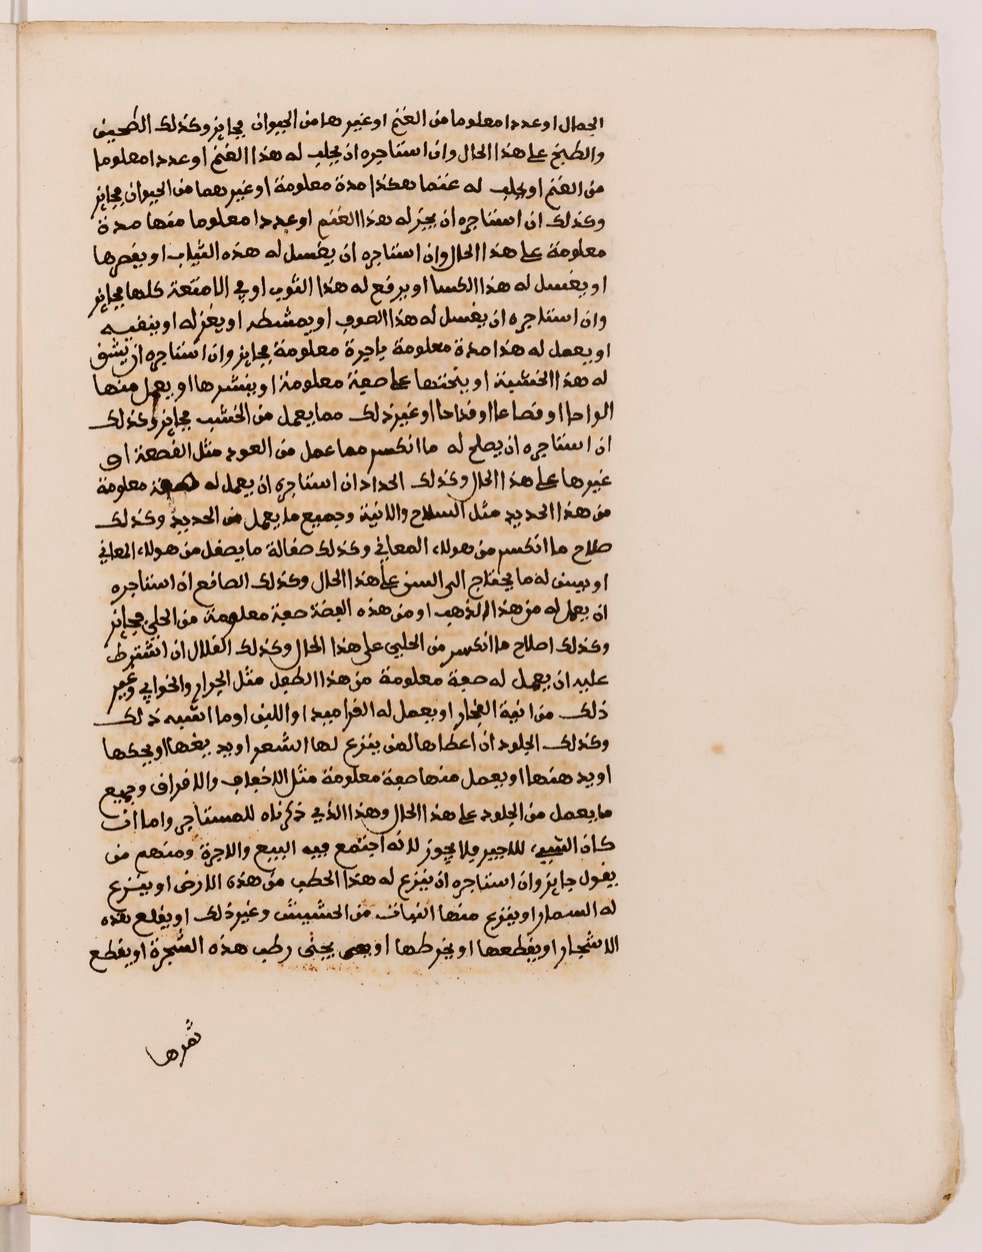 الجمال او عددا معلوما من الغنم او غيرها من الحيوان فجايز وكذلك الطحين
والطبخ على هذا الحال وان استاجره ان يحلب له هذا الغنم او عددا معلوما
من الغنم او يحلب له غنما هكذا مدة معلومة او غيرهما من الحيوان فجايز
وكذلك ان استاجره ان يجز له هذا الغنم او عددا معلوما منها مدة
معلومة على هذا الحال وان استاجره ان يغسل له هذه الثياب او يقصرها
او يغسل له هذا الكسا او يرفع له هذا الثوب او في الامتعة كلها فجايز
وان استاجره ان يغسل له هذا الصوف او يمشطه او يغزله او ينقيه
او يعمل له هذا مدة معلومة باجرة معلومة فجايز وان استاجره ان يشق
له هذا الخشبة او ينحتها على صفة معلومة او ينشرها او يعمل منها
الواحا او قصاعا او قداحا او غير ذلك مما يعمل من الخشب فجايز وكذلك
ان استاجره ان يصلح له ما انكسر مما عمل من العود مثل القصعة او
غيرها على هذا الحال وكذلك الحداد ان استاجره ان يعمل له صفة معلومة
من هذا الحديد مثل السلاح والانية وجميع ما يعمل من الحديد وكذلك
صلاح ما انكسر من هولاء المعاني وكذلك صقالة ما يصقل من هولاء المعاني
او يسن له ما يحتاج الى السن على هذا الحال وكذلك الصائع ان استاجره
ان يعمل له من هذا الذهب او من هذه الفضة صفة معلومة من الحلي فجايز
وكذلك اصلاح ما انكسر من الحلي على هذا الحال وكذلك الفلال ان اشترط
عليه ان يعمل له صفة معلومة من هذا الطفل مثل الجرار والخوابي وغير
ذلك من انية الفخار او يعمل له القراميد او اللبن او ما اشبه ذلك
وكذلك الجلود ان اعطاها لمن ينزع لها الشعر او يدبغها او يحكها
او يدهنها او يعمل منها صفة معلومة مثل الاخفاف والاقراق وجميع
ما يعمل من الجلود على هذا الحال وهذا الذي ذكرناه للمستاجر واما ان
كان الشيء للاجير فلا يجوز لانه اجتمع فيه البيع والاجرة ومنهم من
يقول جايز وان استاجره ان ينزع له هذا الحطب من هذه الارض او ينزع
له السمار او ينزع منها النبات من الحشيش وغير ذلك او يقلع هذه
الاشجار او يقطعها او يخرطها او يجنى رطب هذه الشجرة او يقطع
ثمرها